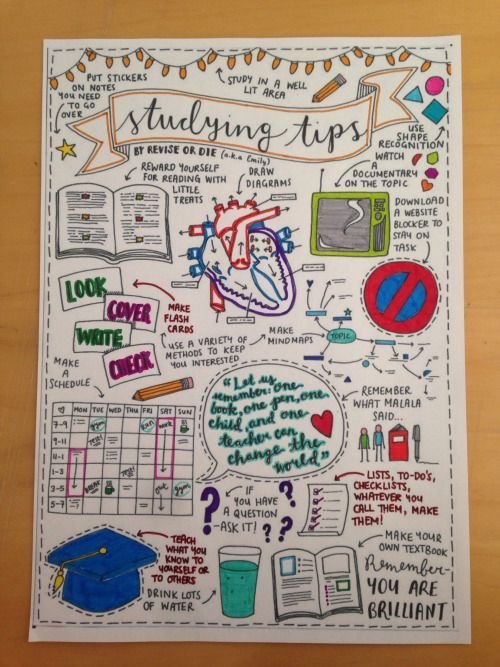 PUT STICKERS
ON NOTES
YOU NEED
TO GO
OVER
STUDY IN A WELL
LIT AREA
studying tips
BY REVISE OR DIE (a.k.a Emily)
USE
SHAPE
RECOGNITION
REWARD YOURSELF
FOR READING WITH
LITTLE
TREATS
DRAW
DIAGRAMS
WATCH
A
DOCUMENTARY
ON THE TOPIC
DOWNLOAD
A WEBSITE
BLOCKER TO
STAY ON
TASK
LOOK
COVER
WRITE
CHECK
MAKE
FLASH
CARDS
USE A VARIETY OF
METHODS TO KEEP
YOU INTERESTED
MAKE
MINDMAPS
TOPIC
MAKE
A
SCHEDULE
MON TUE WED THU FRI SAT SUN
7-9
9-11
11-1
1-3
3-5
5-7
gym
work
out
gym
"Let us
remember: one
book, one pen, one
child, and one
teacher can
change the
world"
REMEMBER
WHAT MALALA
SAID...
IF
YOU HAVE
A QUESTION
-ASK IT!
LISTS, TO-DO'S,
CHECKLISTS,
WHATEVER YOU
CALL THEM, MAKE
THEM!
TEACH
WHAT YOU
KNOW TO
YOURSELF OR
TO OTHERS
DRINK LOTS
OF WATER
MAKE YOUR
OWN TEXTBOOK
Remember-
YOU ARE
BRILLIANT